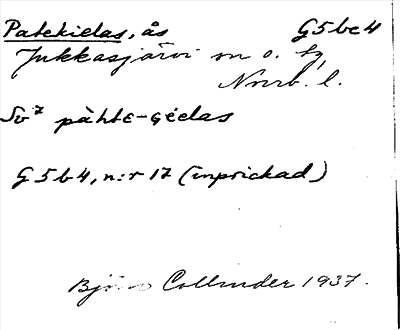 Patekielas, ås G5bc4
Jukkasjärvi sn o. tg,
Norrb. l.
Sv⁷ pàhtɛ-gielas
G 5 b 4, n:r 17 (inprickad)
Björn Collinder 1937.